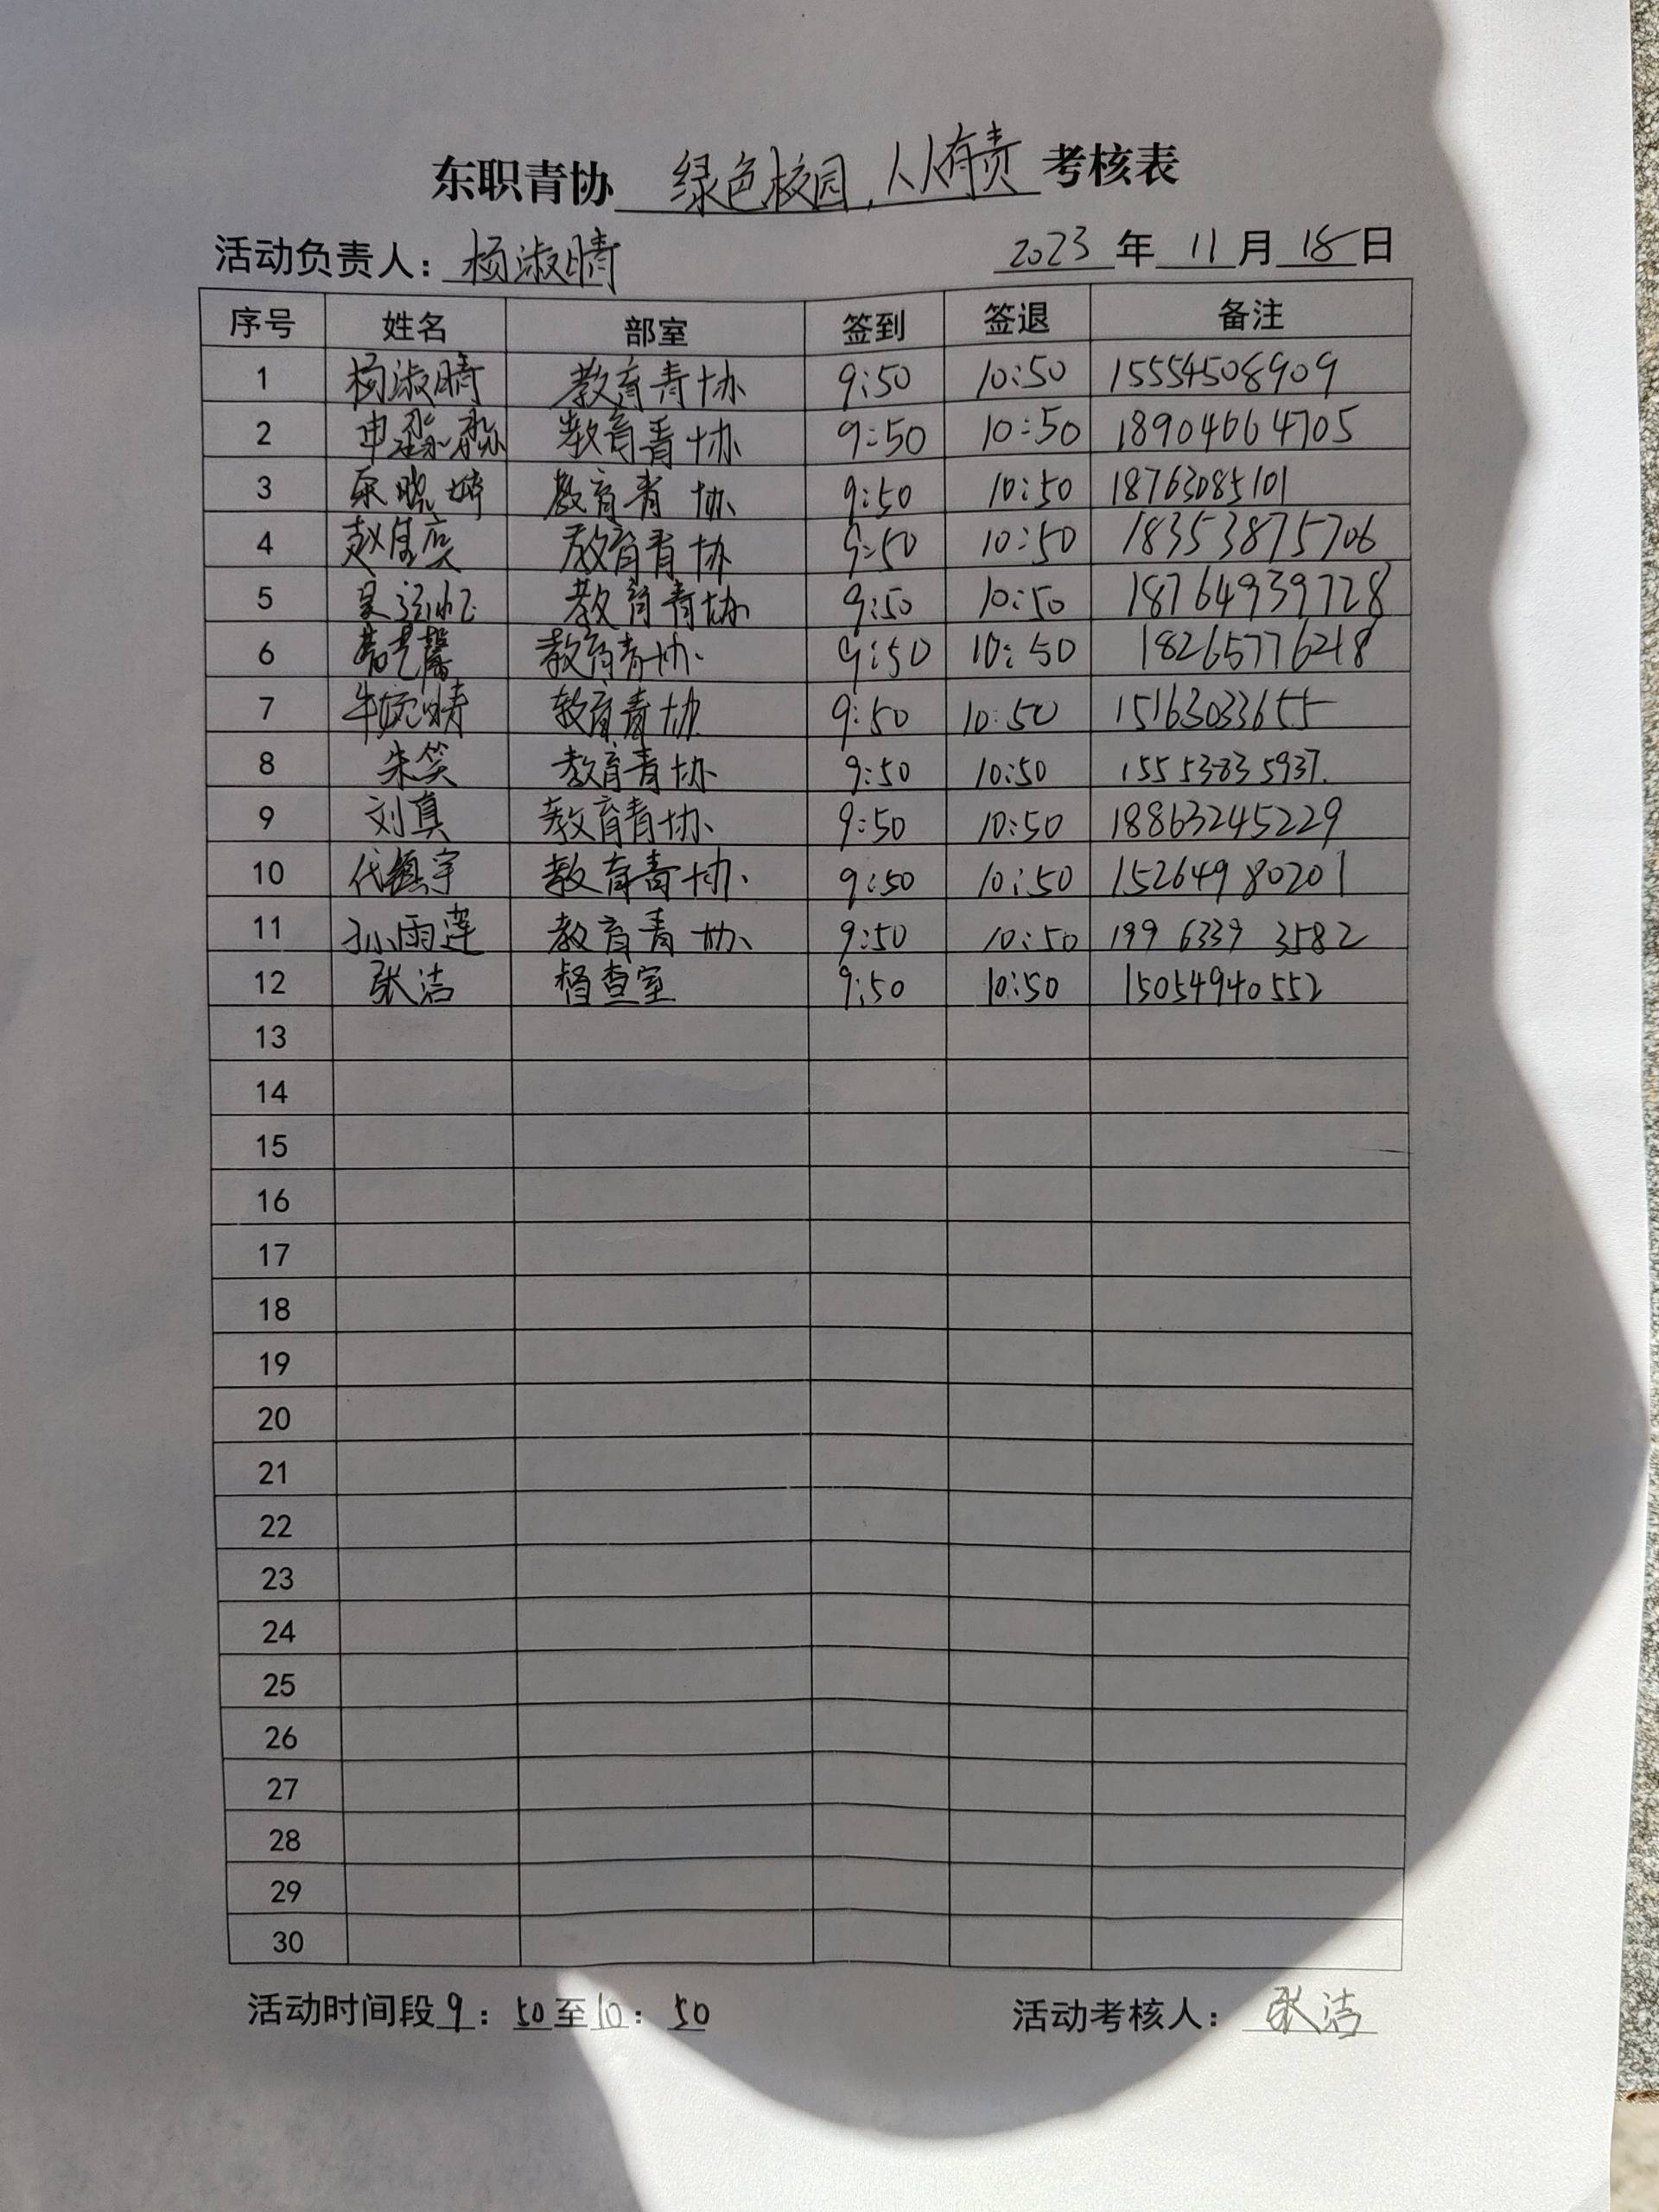 东职青协 绿色校园,人人有责 考核表
活动负责人: 杨淑晴 2023 年 11 月 18 日
序号 姓名 部室 签到 签退 备注
1 杨淑晴 教育青协 9:50 10:50 15554508909
2 申淼淼 教育青协 9:50 10:50 18904664705
3 晓婷 教育青协 9:50 10:50 18763085101
4 赵 教育青协 9:50 10:50 18353875706
5 吴 教育青协 9:50 10:50 18764939728
6 馨 教育青协 9:50 10:50 18265776218
7 牛婉婧 教育青协 9:50 10:50 15163033655
8 朱笑 教育青协 9:50 10:50 15553835937
9 刘真 教育青协 9:50 10:50 18863245229
10 代镇宇 教育青协 9:50 10:50 15264980201
11 孙雨莲 教育青协 9:50 10:50 199 6339 3582
12 张洁 督查室 9:50 10:50 15054940552
13
14
15
16
17
18
19
20
21
22
23
24
25
26
27
28
29
30
活动时间段 9:50至10:50 活动考核人: 张洁